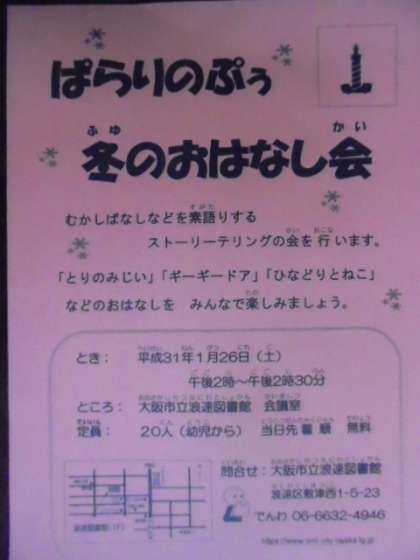 ぱらりのぷぅ
冬のおはなし会
むかしばなしなどを素語りする
ストーリーテリングの会を行います。
「とりのみじい」「ギーギードア」「ひなどりとねこ」
などのおはなしを みんなで楽しみましょう。
とき： 平成31年1月26日（土）
午後2時～午後2時30分
ところ： 大阪市立浪速図書館 会議室
定員： 20人（幼児から） 当日先着順 無料
問合せ：大阪市立浪速図書館
浪速区敷津西1-5-23
でんわ 06-6632-4946